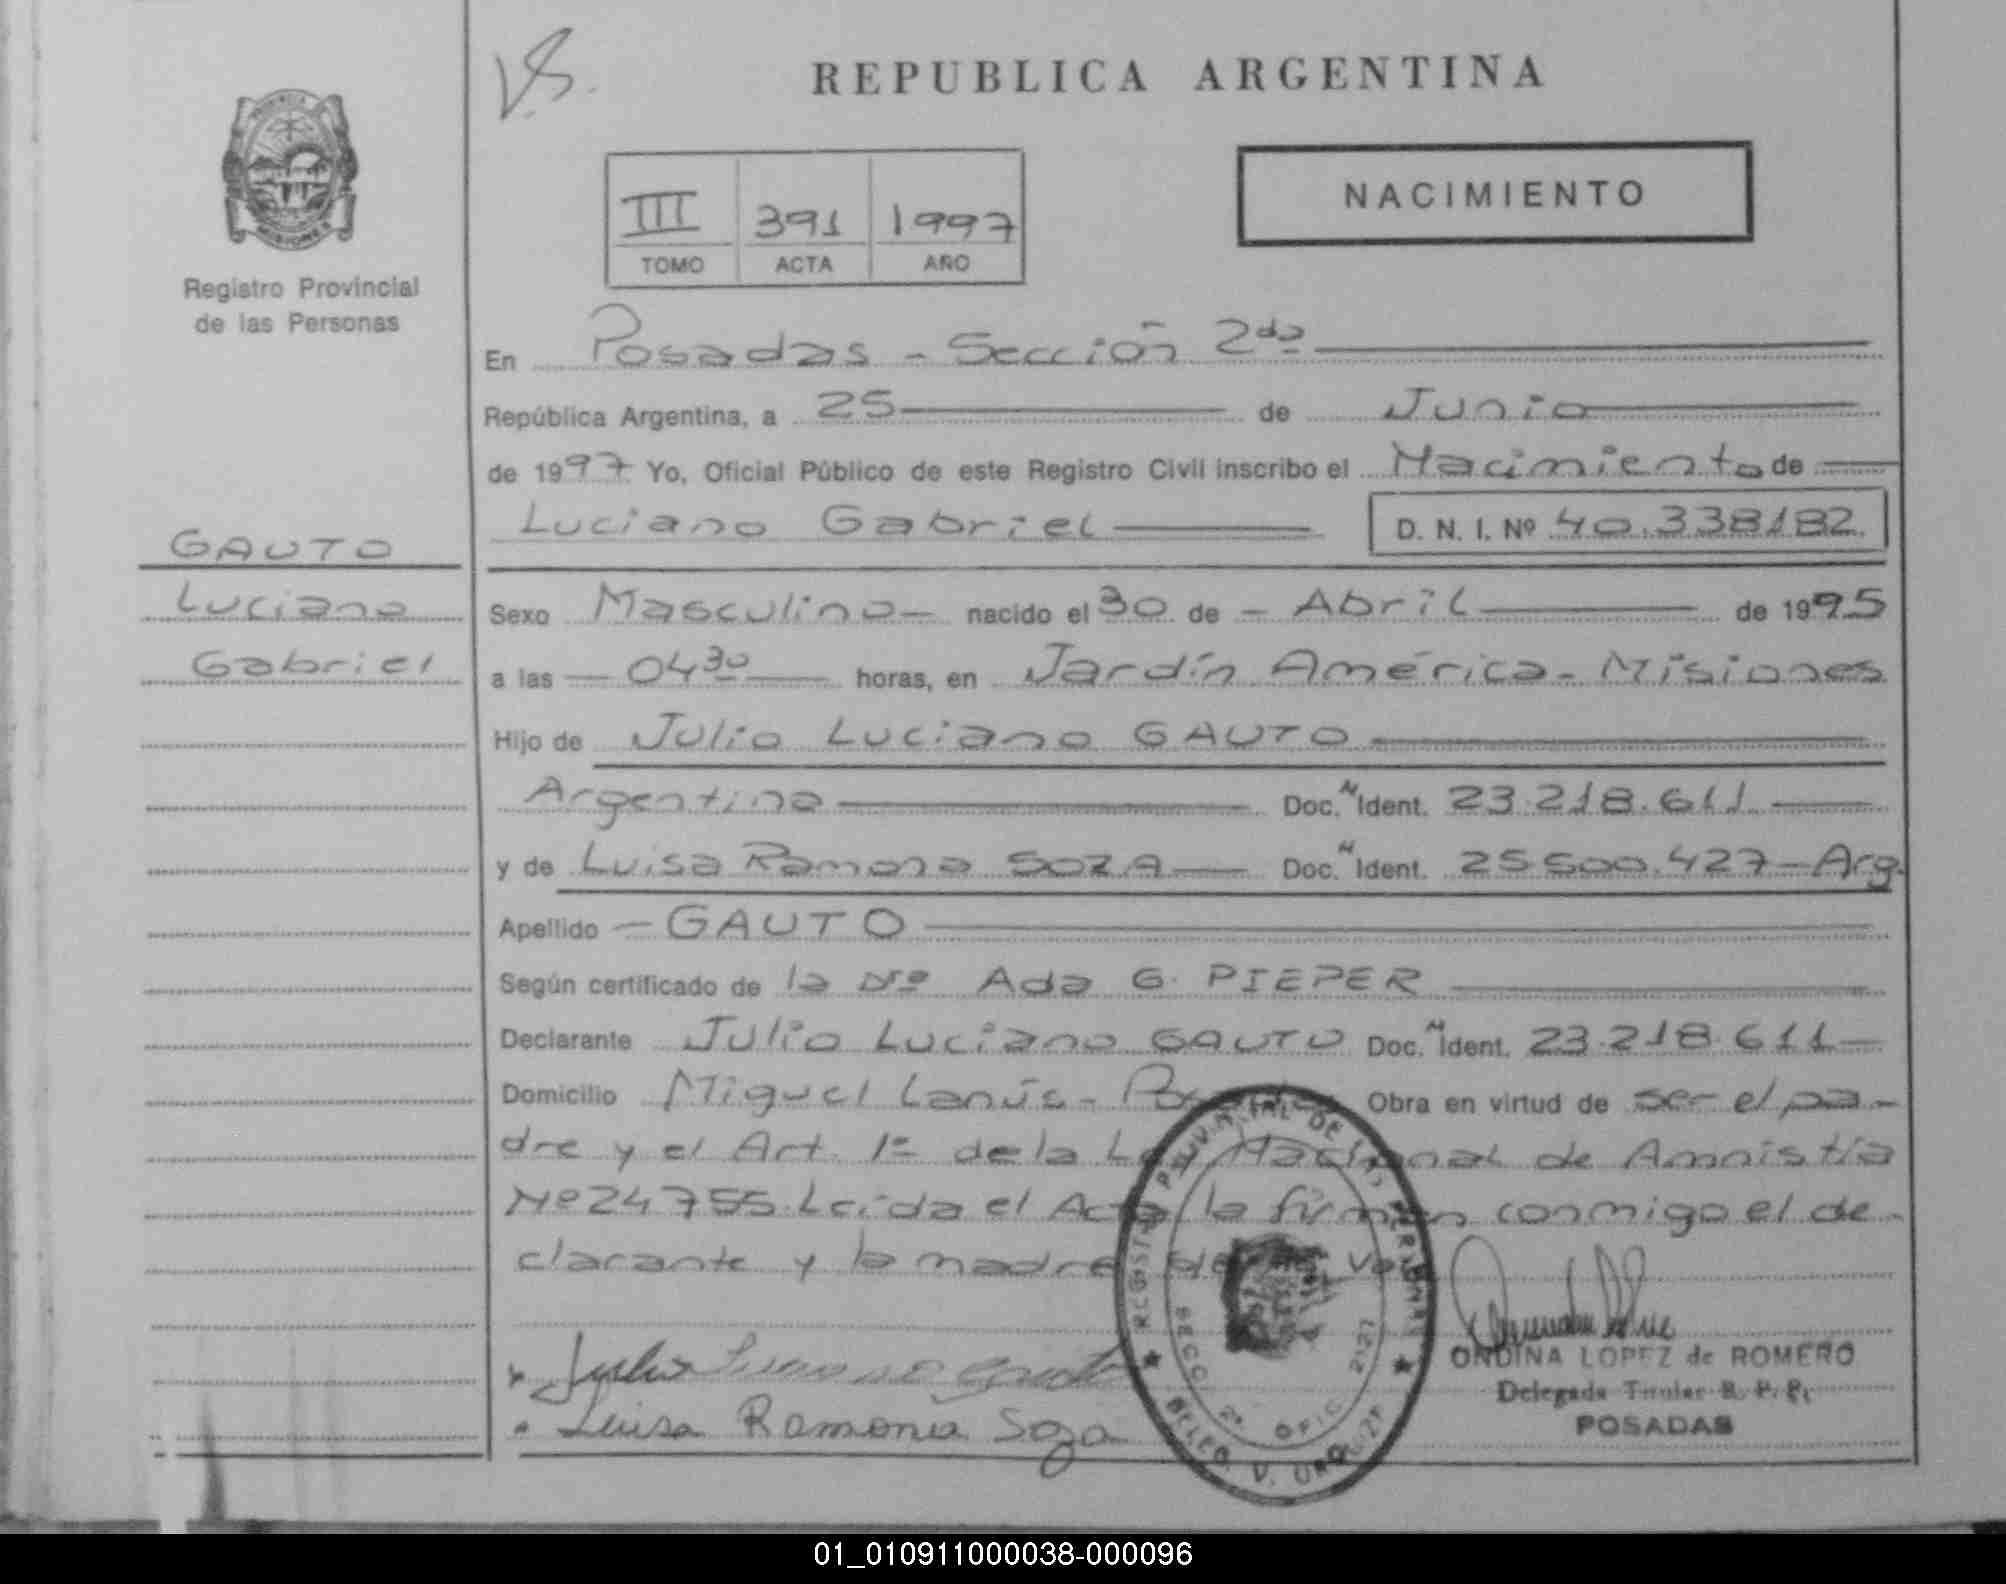 V.S.
REPUBLICA ARGENTINA
PROVINCIA
MISIONES
Registro Provincial
de las Personas
III 391 1997
TOMO ACTA AÑO
NACIMIENTO
En Posadas - Sección 2da
República Argentina, a 25 de Junio
de 1997 Yo, Oficial Público de este Registro Civil inscribo el Nacimiento de
Luciano Gabriel D. N. I. Nº 40.338182.
GAUTO
Luciano
Gabriel
Sexo Masculino nacido el 30 de Abril de 1995
a las 04 30 horas, en Jardín América - Misiones
Hijo de Julio Luciano GAUTO
Argentino Doc. N Ident. 23.218.611
y de Luisa Ramona SOZA Doc. N Ident. 25.500.427 - Arg.
Apellido - GAUTO
Según certificado de la Ada G. PIEPER
Declarante Julio Luciano GAUTO Doc. N Ident. 23.218.611
Domicilio Miguel Lanús - Posadas Obra en virtud de ser el pa-
dre y el Art. 1º de la Ley Nacional de Amnistía
Nº 24755. Leída el Acta la firman conmigo el de-
clarante y la madre
Julio Gauto
Luisa Ramona Soza
REGISTRO PROVINCIAL DE LAS PERSONAS
SECC. 2ª OFIC. 2127
DELEG. V. URQUIZA
ONDINA LOPEZ de ROMERO
Delegada Titular R. P. P.
POSADAS
01_010911000038-000096